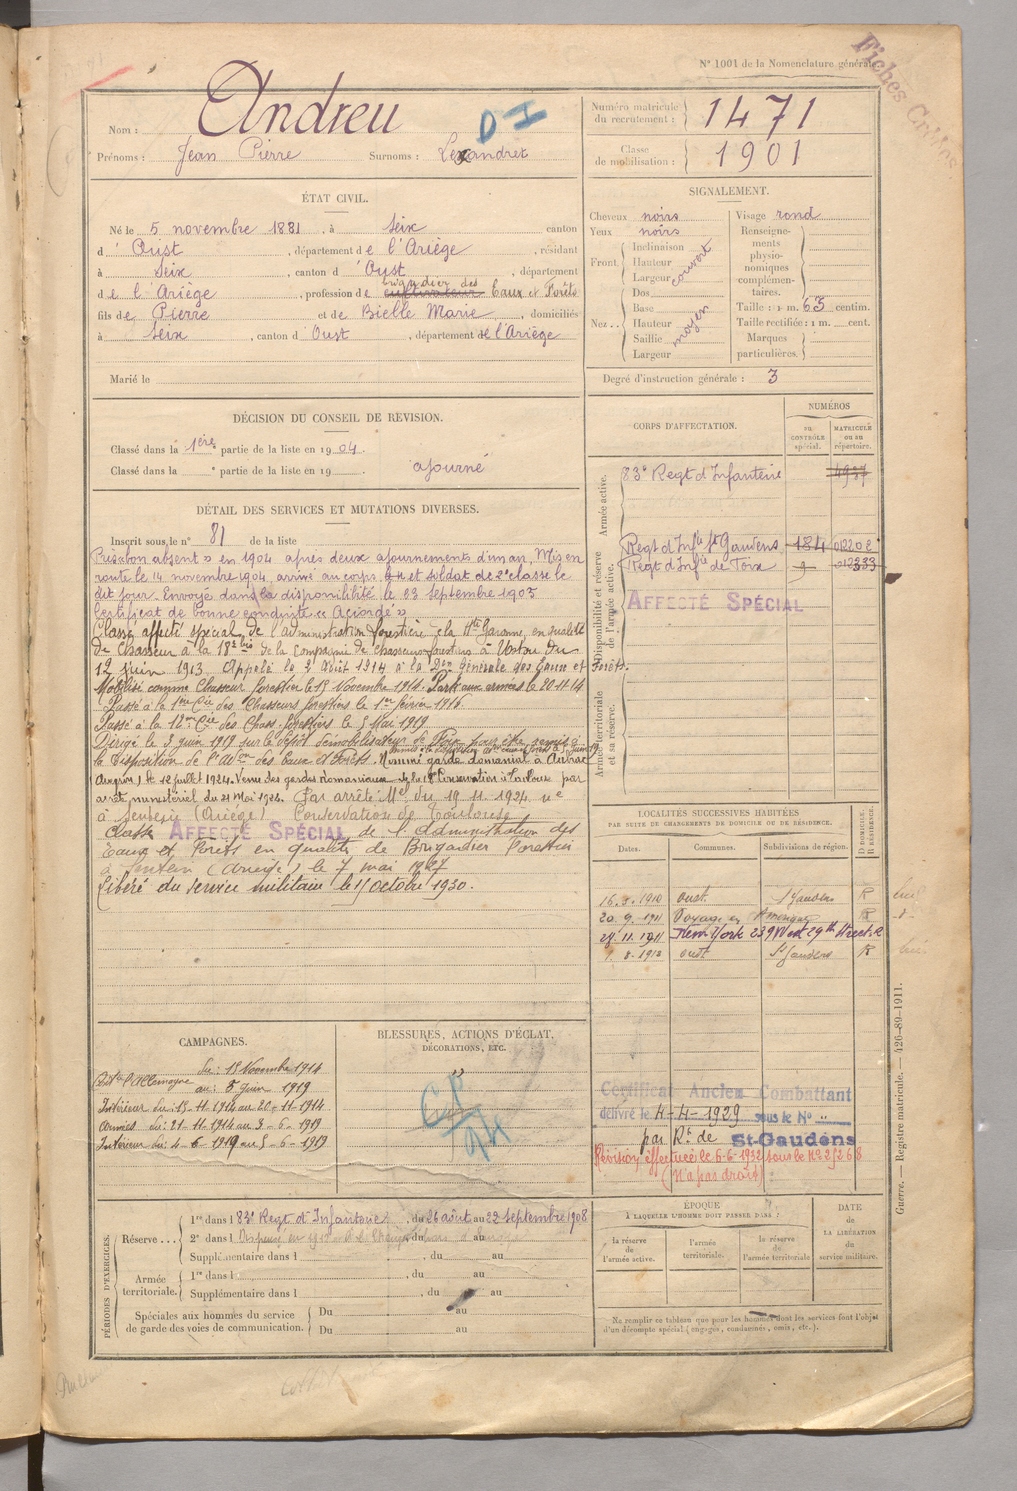 Fiches Créées
N° 1001 de la Nomenclature générale.
Nom : Andreu
D I
Prénoms : Jean Pierre Surnoms : Lexandret
Numéro matricule du recrutement : 1471
Classe de mobilisation : 1901
ÉTAT CIVIL.
Né le 5 novembre 1881, à Seix canton
d'Oust, département de l'Ariège, résidant
à Seix, canton d'Oust, département
de l'Ariège, profession de cultivateur brigadier des Eaux et Forêts
fils de Pierre et de Bielle Marie, domiciliés
à Seix, canton d'Oust, département de l'Ariège
Marié le
SIGNALEMENT.
Cheveux noirs
Yeux noirs
Front Inclinaison Hauteur Largeur couvert
Nez Dos Base Hauteur Saillie Largeur moyen
Visage rond
Renseignements physionomiques complémentaires.
Taille : 1 m. 63 centim.
Taille rectifiée : 1 m. cent.
Marques particulières.
Degré d'instruction générale : 3
DÉCISION DU CONSEIL DE REVISION.
Classé dans la 1ère partie de la liste en 1904.
Classé dans la ° partie de la liste en 19 . ajourné
CORPS D'AFFECTATION.
NUMÉROS
au CONTRÔLE spécial.
MATRICULE ou au répertoire.
Armée active.
83e Regt d'Infanterie 4937
Disponibilité et réserve de l'armée active.
Regt d'Infie St Gaudens 184 01220 E
Regt d'Infie de Foix 012333
AFFECTÉ SPÉCIAL
Armée territoriale et sa réserve.
DÉTAIL DES SERVICES ET MUTATIONS DIVERSES.
Inscrit sous le n° 81 de la liste
bon absent » en 1904 après deux ajournements d'un an. Mis en
route le 14 novembre 1904, arrivé au corps et soldat de 2e classe le
dit jour. Envoyé dans la disponibilité le 23 Septembre 1905
Certificat de bonne conduite « Accordé »
Classé affecté spécial de l'administration forestière de la Hte Garonne, en qualité
de Chasseur à la 18e bis de la Compagnie de chasseurs forestiers à du
12 juin 1913. Appelé le 2 Août 1914 à la Don Générale des Eaux et Forêts.
Mobilisé comme Chasseur forestier le 15 Novembre 1914. Parti aux armées le 20-11-14
Passé à la 1re Cie des Chasseurs forestiers le 1er février 1916.
Passé à la 12me Cie des Chass. forestiers le 5 Mai 1919.
Dirigé le 3 juin 1919 sur le dépôt démobilisateur de Foix pour être remis à
la disposition de l'adon des Eaux et Forêts. Nommé garde domanial à Aubrac
(Aveyron) le 12 juillet 1924. Venu des gardes domaniaux de la Conservation à Toulouse par
arrêté ministériel du 21 Mai 1924. Par arrêté Mel du 19.11.1924
à (Ariège) Conservation de Toulouse
Classé AFFECTÉ SPÉCIAL de l'Administration des
Eaux et Forêts en qualité de Brigadier Forestier
à Sentein (Ariège) le 7 mai 1927
Libéré du service militaire le 15 octobre 1930.
LOCALITÉS SUCCESSIVES HABITÉES
PAR SUITE DE CHANGEMENTS DE DOMICILE OU DE RÉSIDENCE.
Dates. Communes. Subdivisions de région. D DOMICILE. R RÉSIDENCE.
16.3.1910 oust. St Gaudens R
20.9.1911 Voyage en Amérique R
27.11.1911 New-York 239 West 29th Street R
1.8.1912 oust St Gaudens R
CAMPAGNES.
Cte l'Allemagne du : 15 Novembre 1914
au : 5 Juin 1919
Intérieur du : 15-11-1914 au 20-11-1914
armées du : 21-11-1914 au 3-6-1919
Intérieur du : 4-6-1919 au 5-6-1919
BLESSURES, ACTIONS D'ÉCLAT,
DÉCORATIONS, ETC.
Certificat Ancien Combattant
délivré le 4-4-1929 sous le N° ..
par Rt de St-Gaudens
Révision effectuée le 6-6-1932 sous le N° 25268
(N'a pas droit)
PÉRIODES D'EXERCICES.
Réserve . . .
1re dans l 83e Regt d'Infanterie, du 26 août au 22 Septembre 1908
2e dans l Dispensé en , du au
Supplémentaire dans l , du au
Armée territoriale.
1re dans l , du au
Supplémentaire dans l , du au
Spéciales aux hommes du service de garde des voies de communication.
Du au
Du au
ÉPOQUE
À LAQUELLE L'HOMME DOIT PASSER DANS :
la réserve de l'armée active.
l'armée territoriale.
la réserve de l'armée territoriale
DATE de la LIBÉRATION du service militaire.
Ne remplir ce tableau que pour les hommes dont les services font l'objet
d'un décompte spécial (engagés, condamnés, omis, etc.).
Guerre. — Registre matricule. — 426-89-1911.